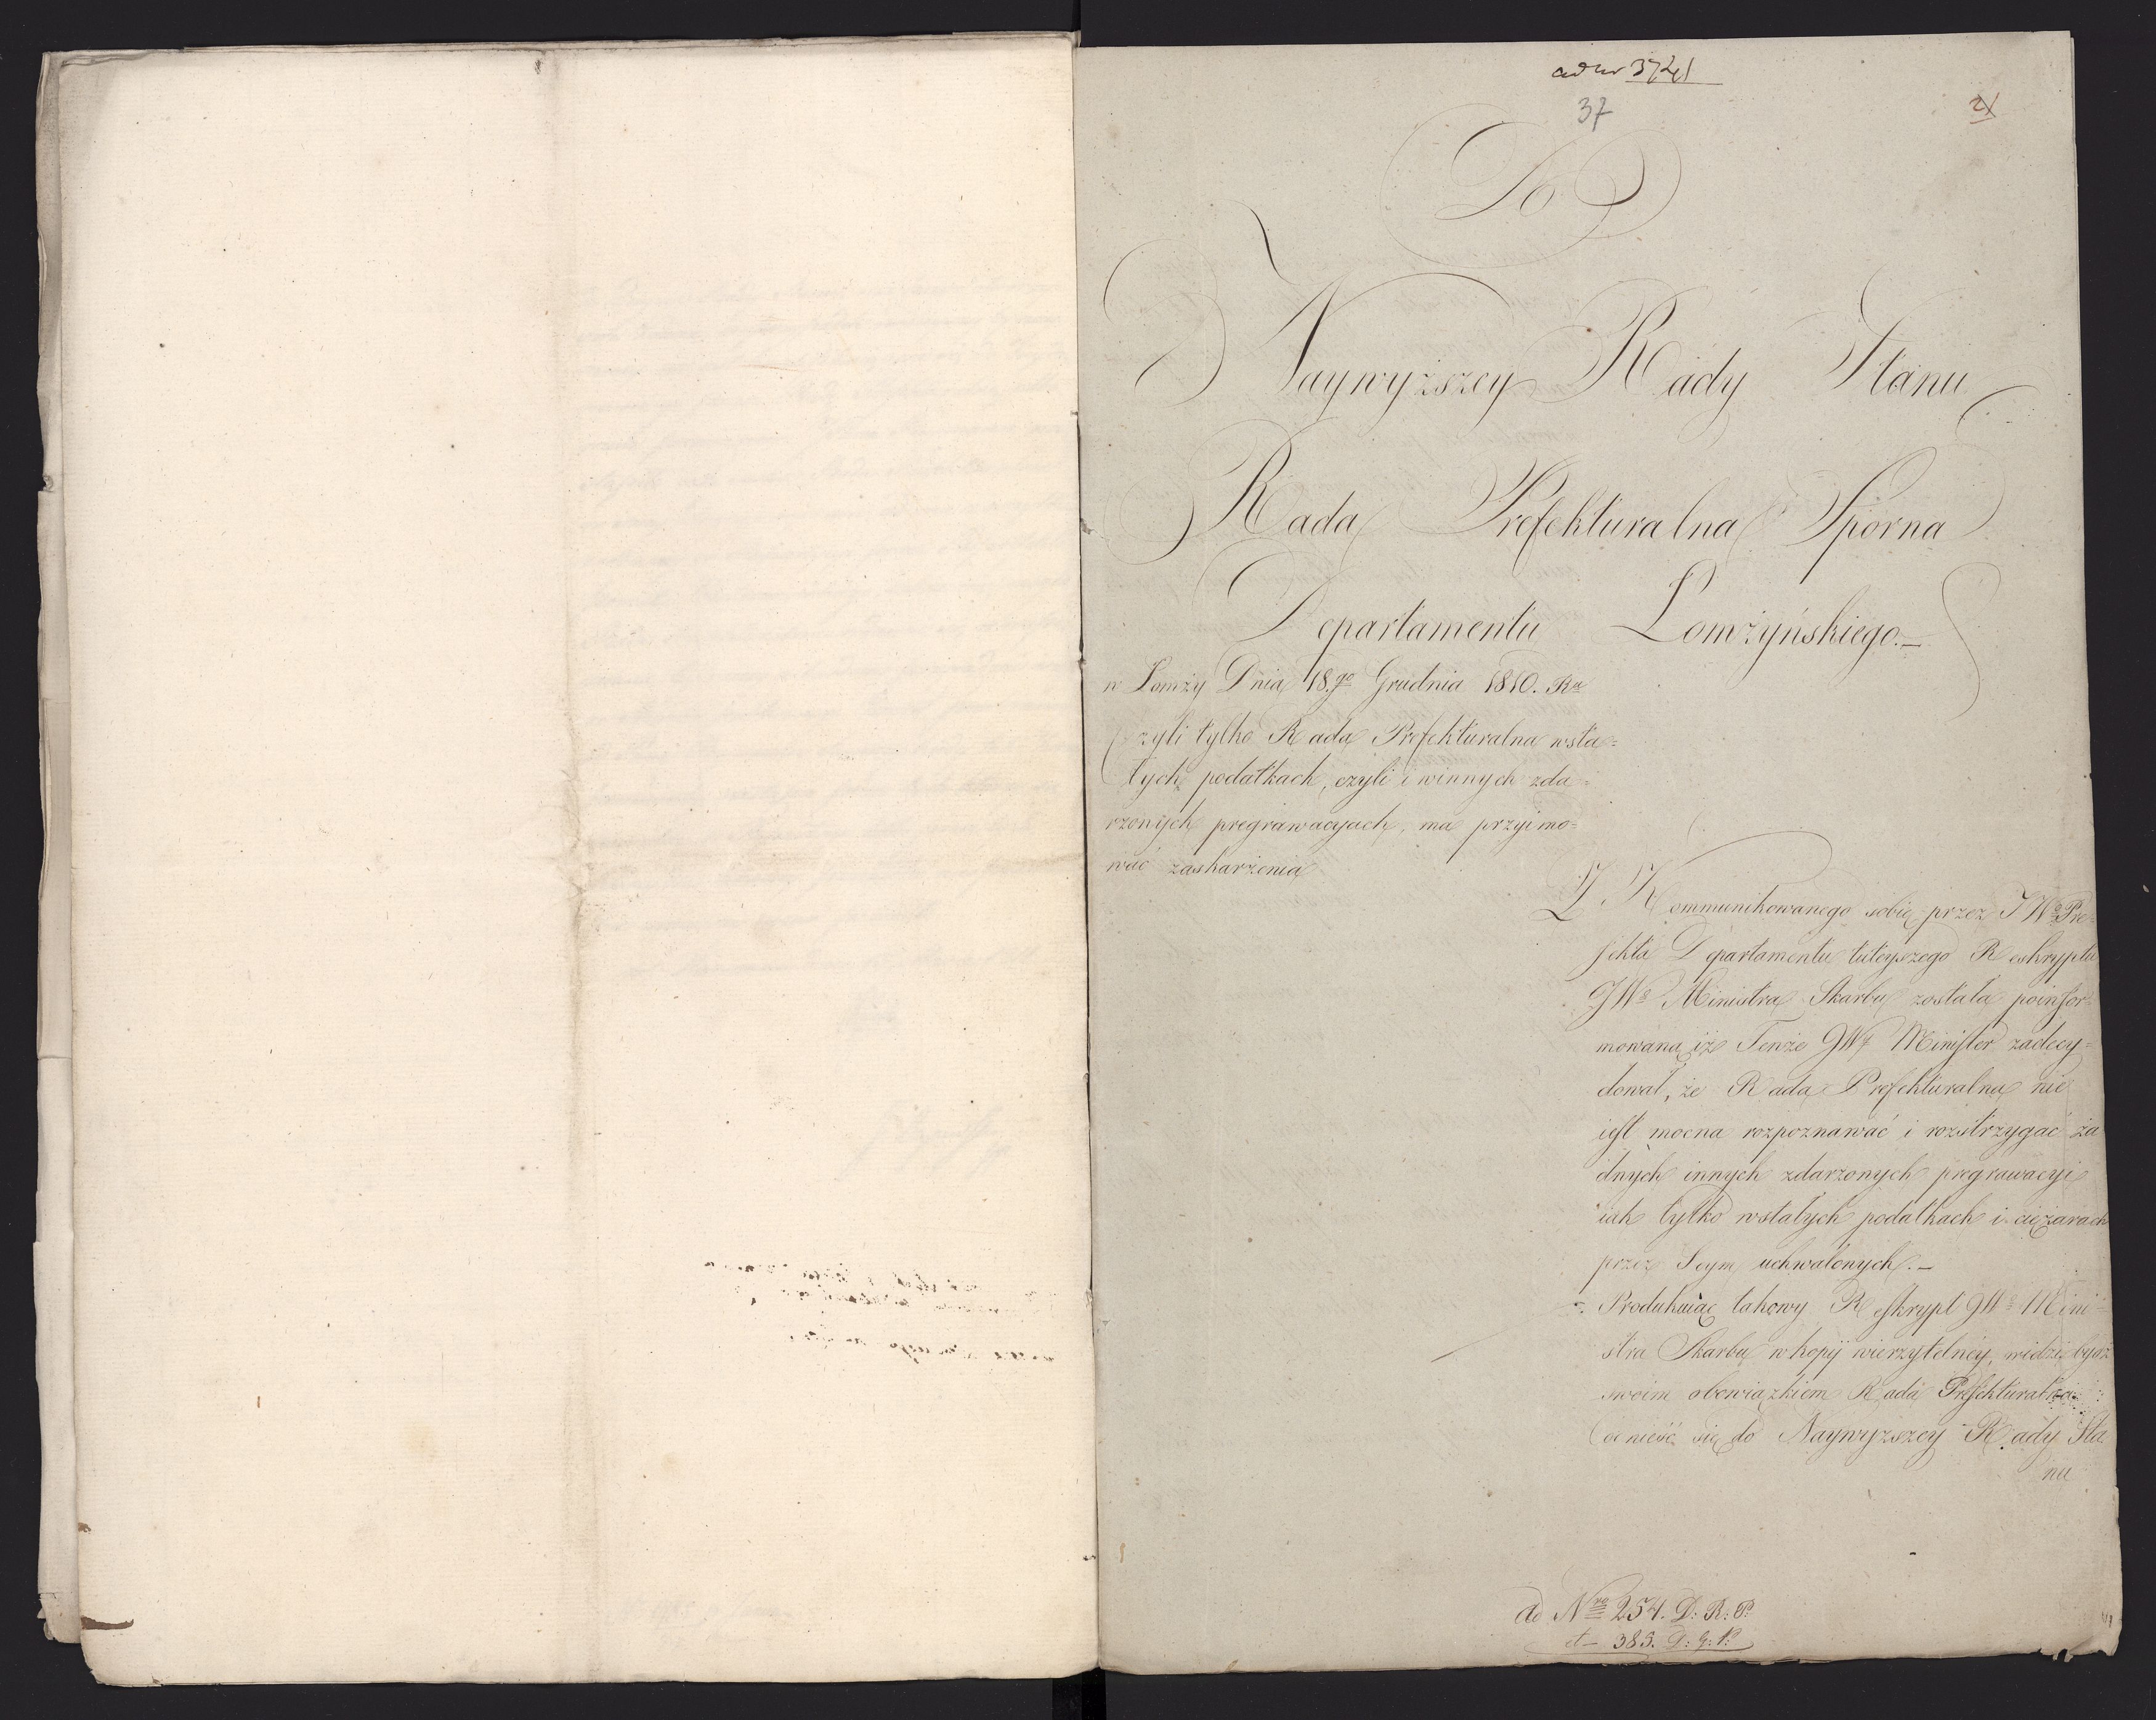 ad nr 3741
37
21
Do
Naywyższey Rady Stanu
Rada Prefekturalna Sporna
Departamentu Łomżyńskiego.—
w Łomży Dnia 18.go Grudnia 1810. Ru
Czyli tylko Rada Prefekturalna wsta=
łych podatkach, czyli i winnych zda=
rzonych pregrawacyach, ma przyimo=
wać zaskarżenia
Z Kommunikowanego sobie przez JWo Pre=
fekta Departamentu tuteyszego Reskryptu
JWo Ministra Skarbu została poinfor=
mowaną iż Tenże JWy Minister zadecy=
dował, że Rada Prefekturalna nie
iest mocna rozpoznawać i rozstrzygać ża
dnych innych zdarzonych pregrawacyi
iak tylko wstałych podatkach i ciężarach
przez Seym uchwalonych.—
Produkuiąc takowy Reskrypt JWo Mini=
stra Skarbu w kopij wierzytelney, widzi bydź
swoim obowiązkiem Rada Prefekturalna
odnieść się do Naywyższey Rady Sta
nu
ad Nro 254. D: R: P:
et — 385. D: G: P: